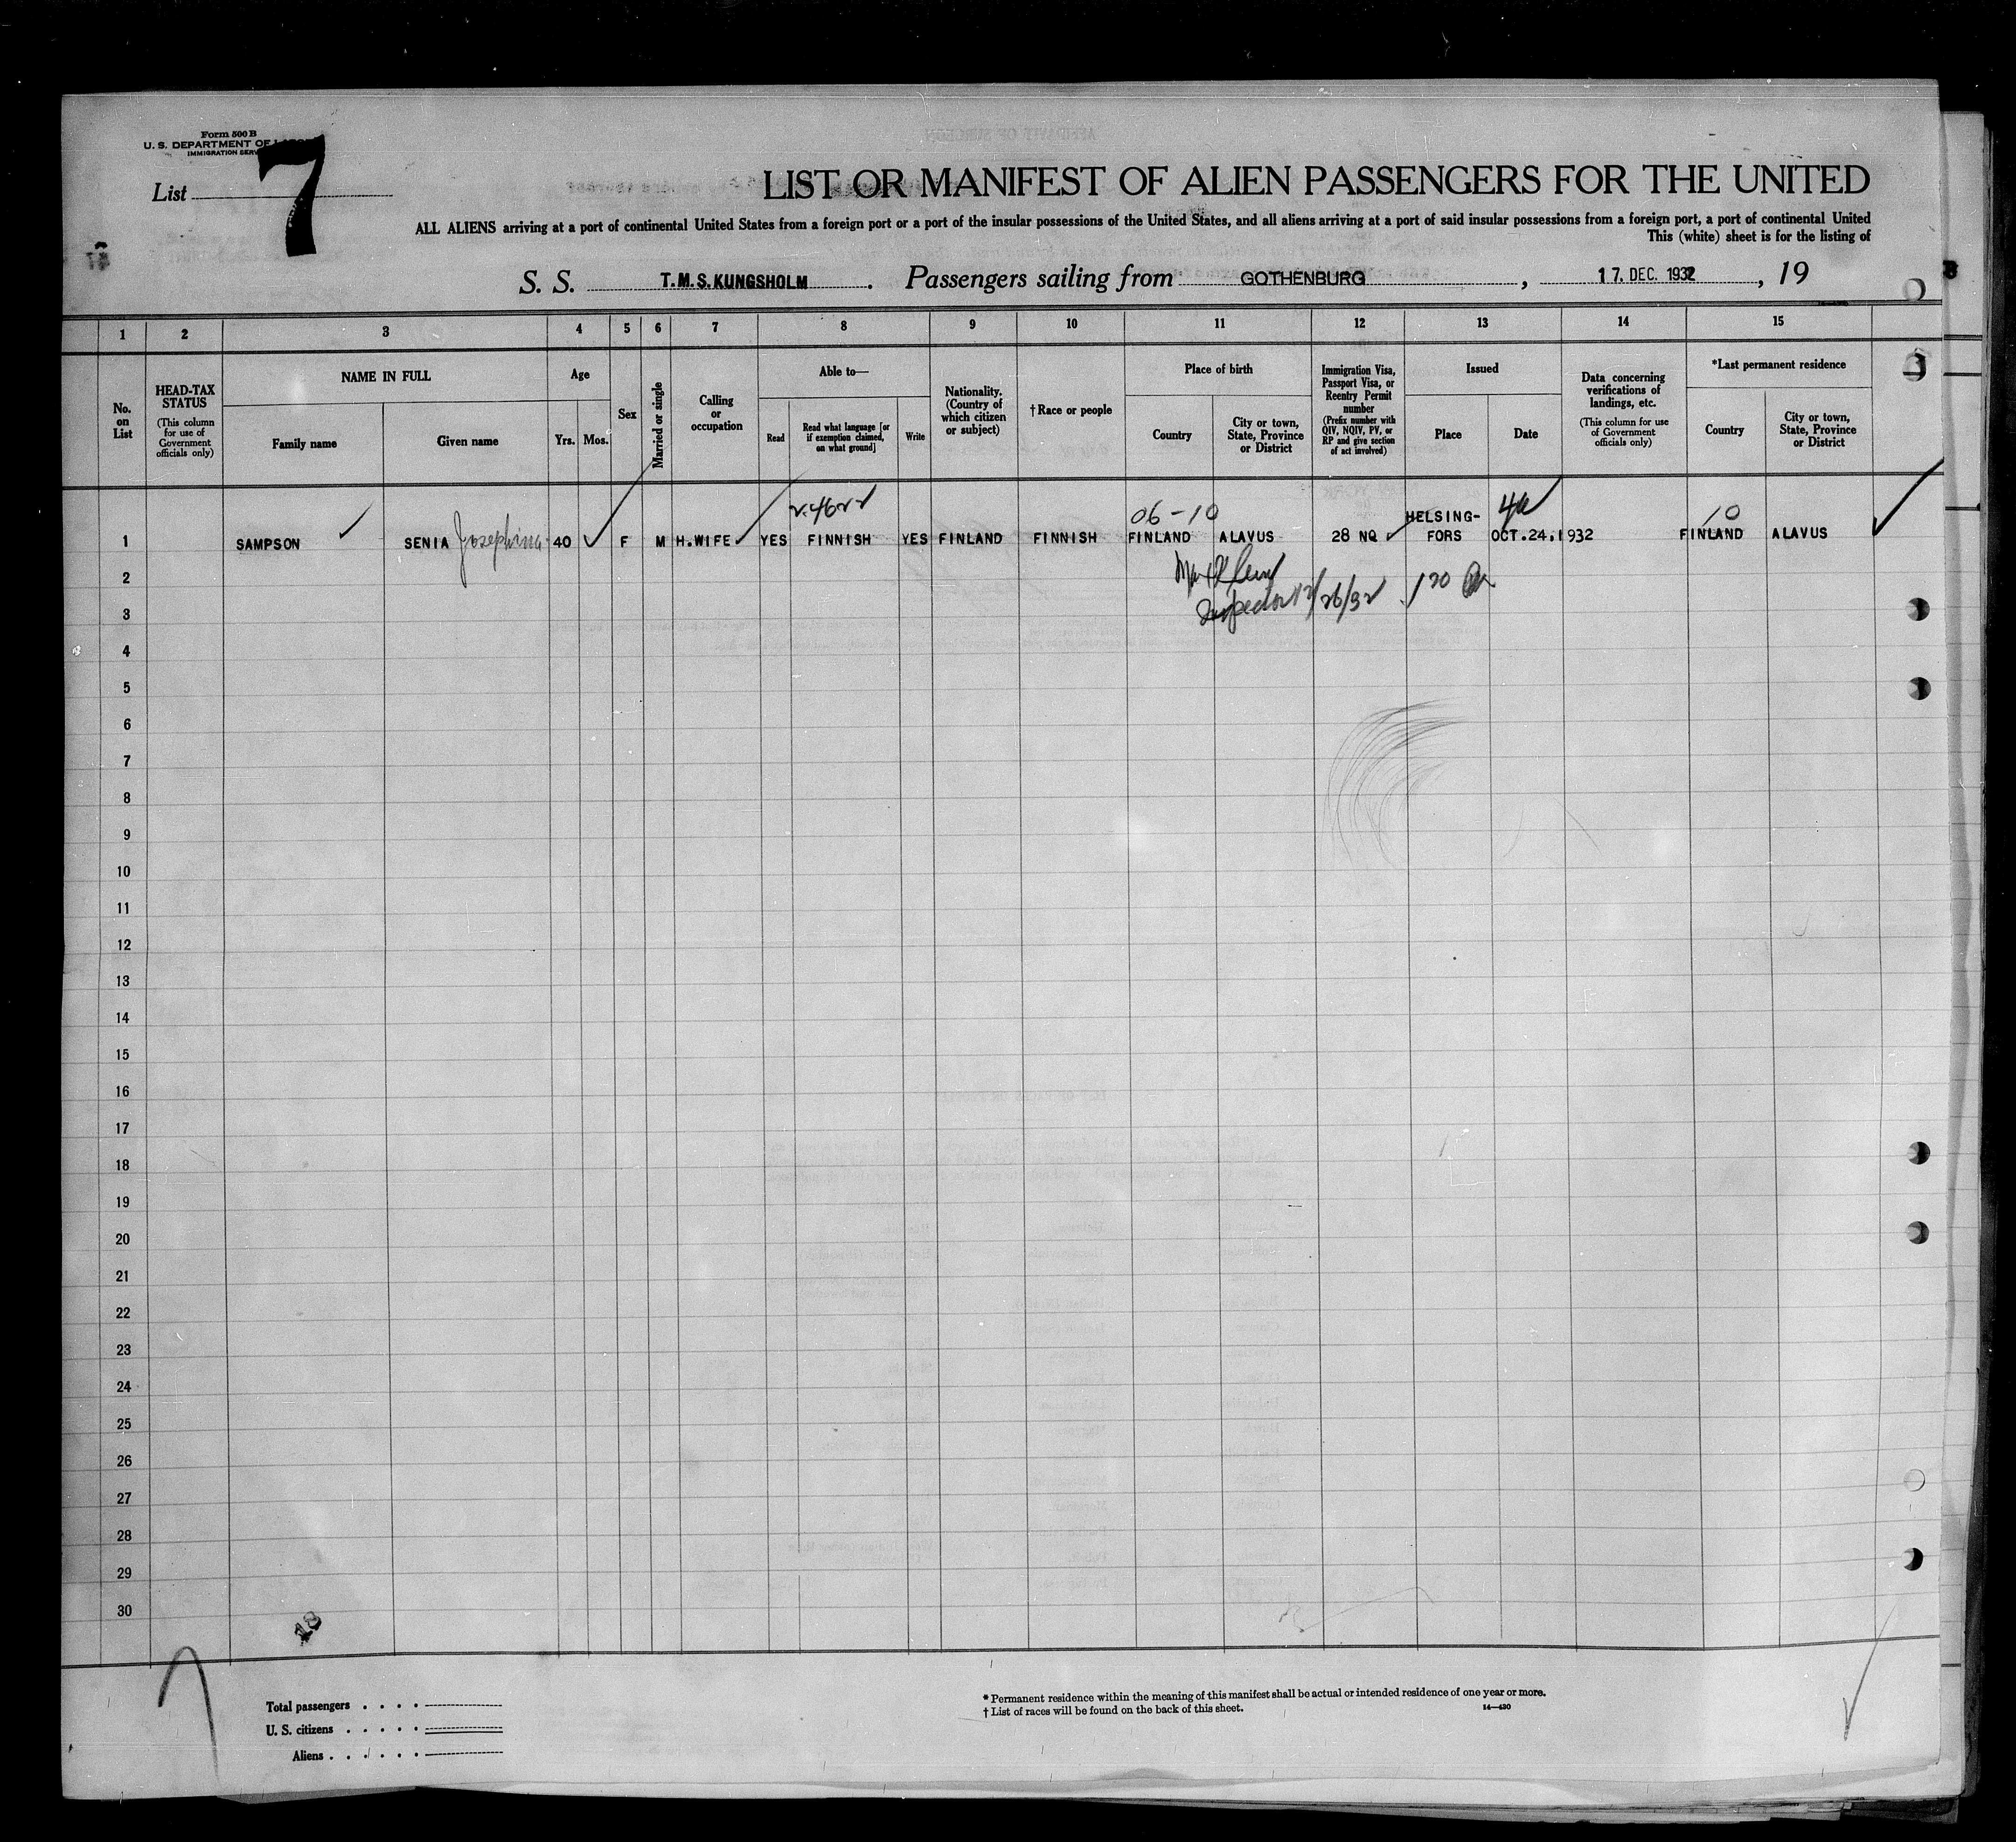 Form 500 B
U. S. DEPARTMENT OF
IMMIGRATION
List 7
LIST OR MANIFEST OF ALIEN PASSENGERS FOR THE UNITED
ALL ALIENS arriving at a port of continental United States from a foreign port or a port of the insular possessions of the United States, and all aliens arriving at a port of said insular possessions from a foreign port, a port of continental United
This (white) sheet is for the listing of
S. S. T.M.S. KUNGSHOLM. Passengers sailing from GOTHENBURG, 17. DEC. 1932, 19
1 2 3 4 5 6 7 8 9 10 11 12 13 14 15
No. on List
HEAD-TAX STATUS
(This column for use of Government officials only)
NAME IN FULL
Family name
Given name
Age
Yrs. Mos.
Sex
Married or single
Calling or occupation
Able to—
Read
Read what language [or if exemption claimed, on what ground]
Write
Nationality. (Country of which citizen or subject)
† Race or people
Place of birth
Country
City or town, State, Province or District
Immigration Visa, Passport Visa, or Reentry Permit number
(Prefix number with QIV, NQIV, PV, or RP and give section of act involved)
Issued
Place
Date
Data concerning verifications of landings, etc.
(This column for use of Government officials only)
*Last permanent residence
Country
City or town, State, Province or District
06-10 10
1 SAMPSON SENIA Josephina 40 F M H.WIFE YES FINNISH YES FINLAND FINNISH FINLAND ALAVUS 28 NQ HELSING-FORS OCT.24,1932 FINLAND ALAVUS
2
Inspector 12/26/32
3
4
5
6
7
8
9
10
11
12
13
14
15
16
17
18
19
20
21
22
23
24
25
26
27
28
29
30
Total passengers . . . .
U. S. citizens . . . . .
Aliens . . . . . .
* Permanent residence within the meaning of this manifest shall be actual or intended residence of one year or more.
† List of races will be found on the back of this sheet.
14—430